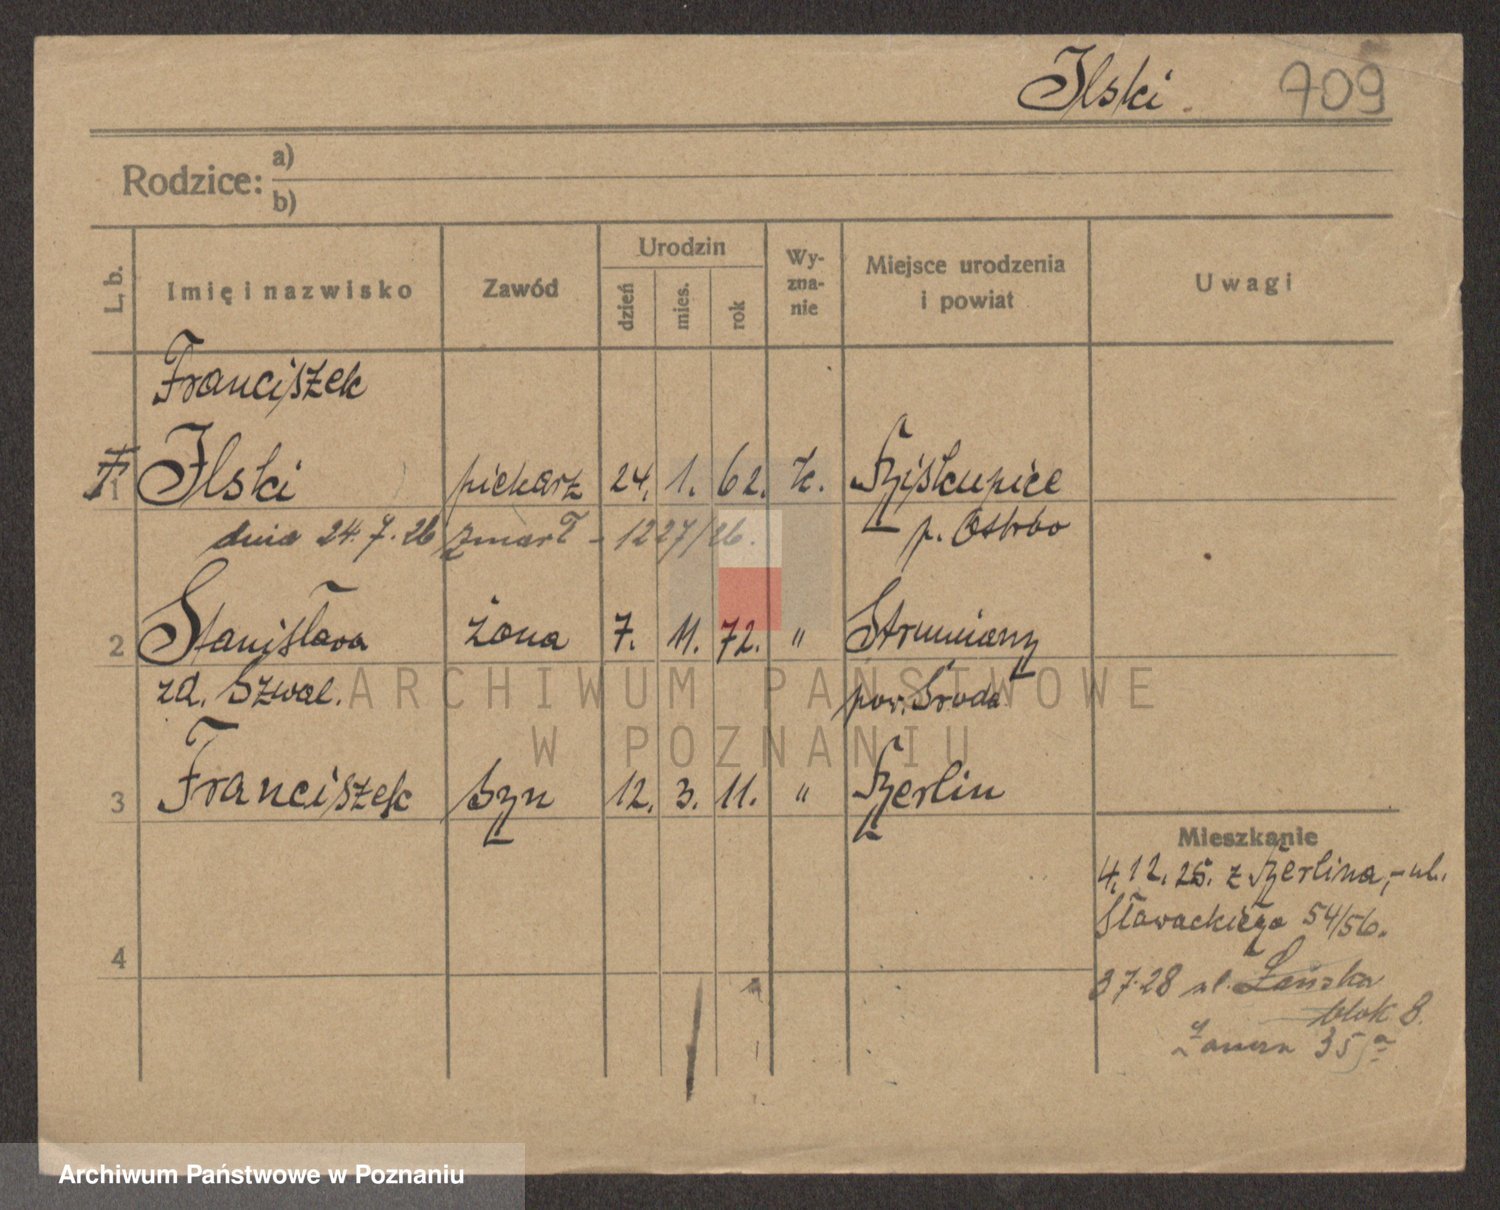 Ilski. 709
Rodzice: a)
b)
L. b. Imię i nazwisko Zawód Urodzin dzień mies. rok Wy-zna-nie Miejsce urodzenia i powiat Uwagi
Franciszek
1 Ilski piekarz 24. 1. 62. k. Biskupice
dnia 24.7.26 zmarł - 1227/26. p. Ostrbo
2 Stanisława żona 7. 11. 72. " Strumiany
zd. Szwal. pow. Środa
3 Franciszek syn 12. 3. 11. " Berlin
Mieszkanie
4.12.25. z Berlina,- ul.
Słowackiego 54/56.
4
37.28 ul.
blok 8.
35a
ARCHIWUM PAŃSTWOWE
W POZNANIU
Archiwum Państwowe w Poznaniu